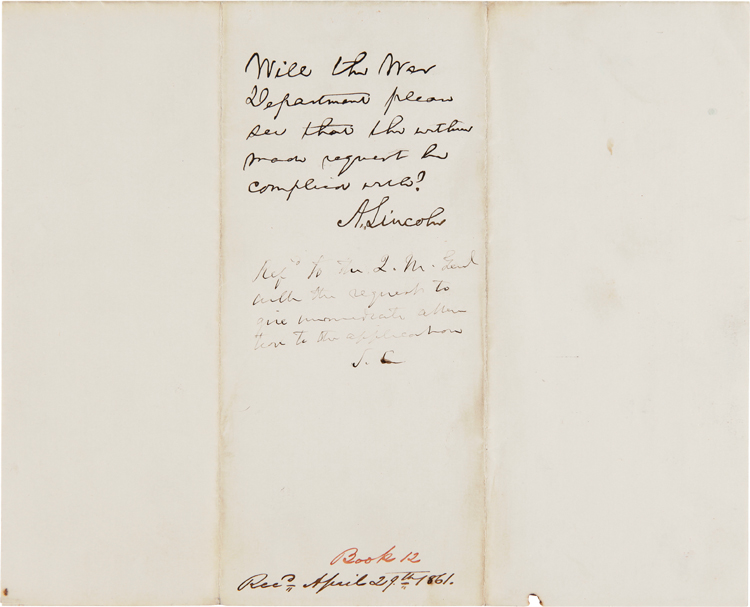 Will the War
Department please
see that the within
made request be
complied with?
A. Lincoln
Refd to the Q. M. Genl
with the request to
give immediate atten
tion to the application
S. C
Book 12
Recd April 29th 1861.